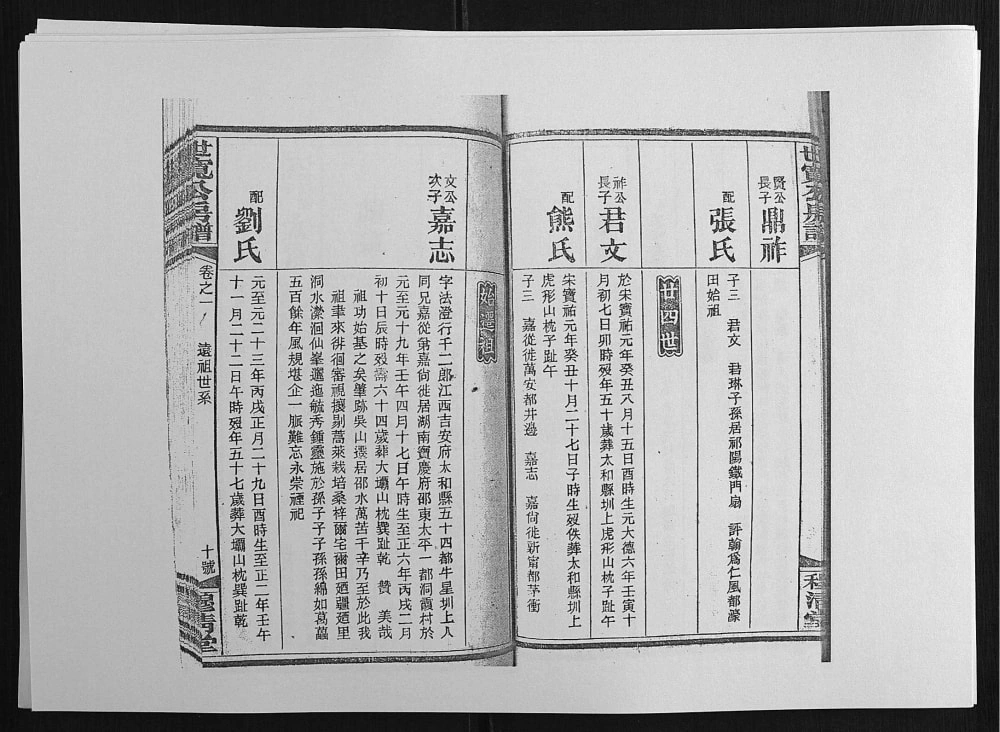 賢公
長子
鼎祚
配
張氏
子三　君文　君琳子孫居祁陽鐵門扇　評翰爲仁風都濠
田始祖
廿四世
祚公
長子
君文
於宋寶祐元年癸丑八月十五日酉時生元大德六年壬寅十
月初七日卯時歿年五十歲葬太和縣圳上虎形山枕子趾午
配
熊氏
宋寶祐元年癸丑十月二十七日子時生歿佚葬太和縣圳上
虎形山枕子趾午
子三　嘉從徙萬安都井邊　嘉志　嘉尙徙新甯都茅衝
始遷祖
文公
次子
嘉志
字法澄行千二郎江西吉安府太和縣五十四都牛星圳上人
同兄嘉從弟嘉尙徙居湖南寶慶府邵東太平一都洞霞村於
元至元十九年壬午四月十七日午時生至正六年丙戌二月
初十日辰時歿壽六十四歲葬大壩山枕巽趾乾　贊　美哉
祖功始基之矣肇跡吳山遷居邵水萬苦千辛乃至於此我
祖聿來徘徊審視攘剔蒿萊栽培桑梓爾宅爾田廼疆廼里
洞水瀠洄仙峯邐迤毓秀鍾靈施於孫子子子孫孫綿如葛藟
五百餘年風規堪企一脈難忘永崇禋祀
配
劉氏
元至元二十三年丙戌正月二十九日酉時生至正二年壬午
十一月二十二日午時歿年五十七歲葬大壩山枕巽趾乾
世寬公房譜
卷之一
遠祖世系
十號